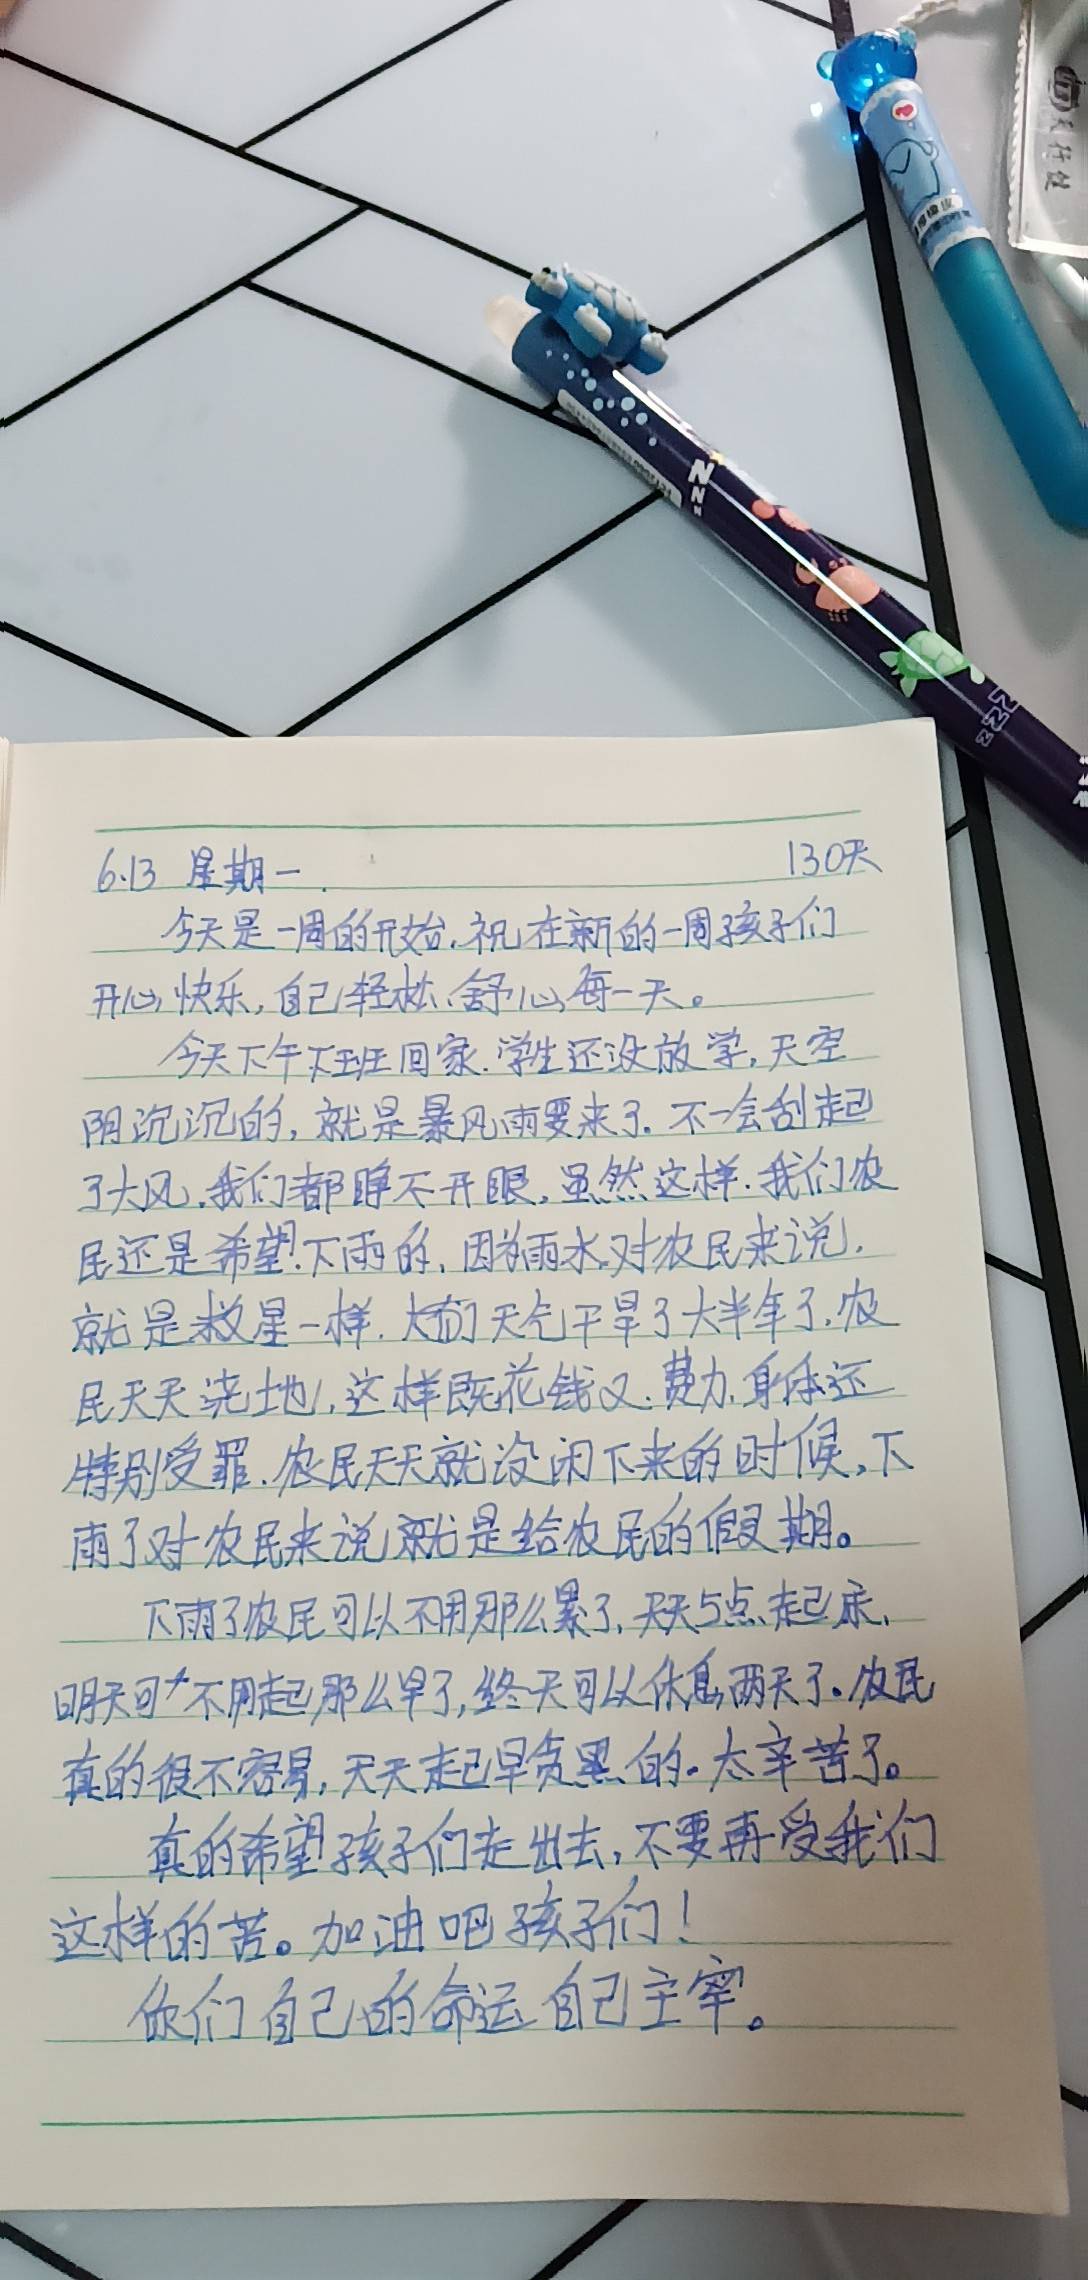 6.13 星期一. 130天
今天是一周的开始.祝在新的一周孩子们
开心,快乐,自己轻松、舒心每一天。
今天下午下班回家.学生还没放学,天空
阴沉沉的,就是暴风雨要来了.不一会刮起
了大风.我们都睁不开眼.虽然这样.我们农
民还是希望.下雨的.因为雨水对农民来说.
就是救星一样.天气干旱了大半年了.农
民天天浇地,这样既花钱又.费力.身体还
特别受罪.农民天天就没闲下来的时候,下
雨了对农民来说就是给农民的假期。
下雨了农民可以不用那么累了,天天5点起床.
明天可 不用起那么早了,终天可以休息两天了。农民
真的很不容易,天天起早贪黑的。太辛苦了。
真的希望孩子们走出去,不要再受我们
这样的苦。加油吧孩子们!
你们自己的命运自己主宰。
N
N
N
Z
Z
Z